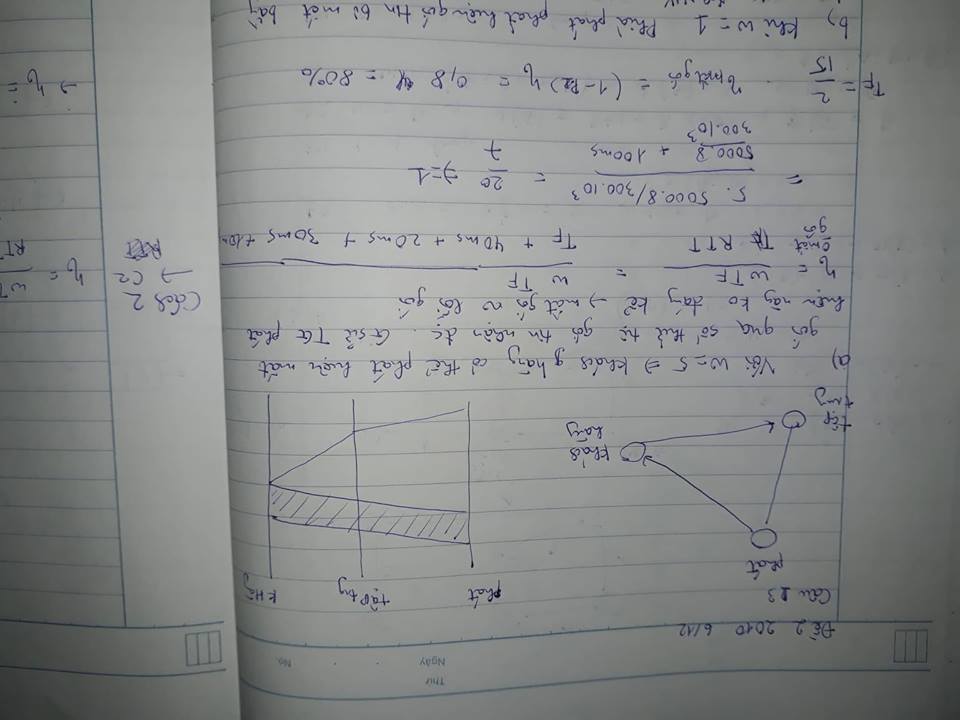 Thứ
Ngày . . No.
Đề 2 2010 6/12
Câu 3
phát
khách hàng
tập trung
phát tập trg K Hàg
a) Với w = 5 => khách hàng có thể phát hiện mất
gói qua số thứ tự gói tin nhận đc. G sử TG phát
hiện này ko đáng kể → mất gói ~ lỗi gói
η 0 mất gói = w TF / RTT = w TF / TF + 40ms + 20ms + 30ms + 10m
= 5. 5000.8/300.10³ / 5000.8/300.10³ + 100ms = 20/7 => = 1
TF = 2/15 η mất gói = (1-P) η = 0,8 = 80%
b, Khi w = 1 Phía phát phát hiện gói tin bị mất bằg
Cách 2
→ C2
RTT
η = wT / RT
→ η =